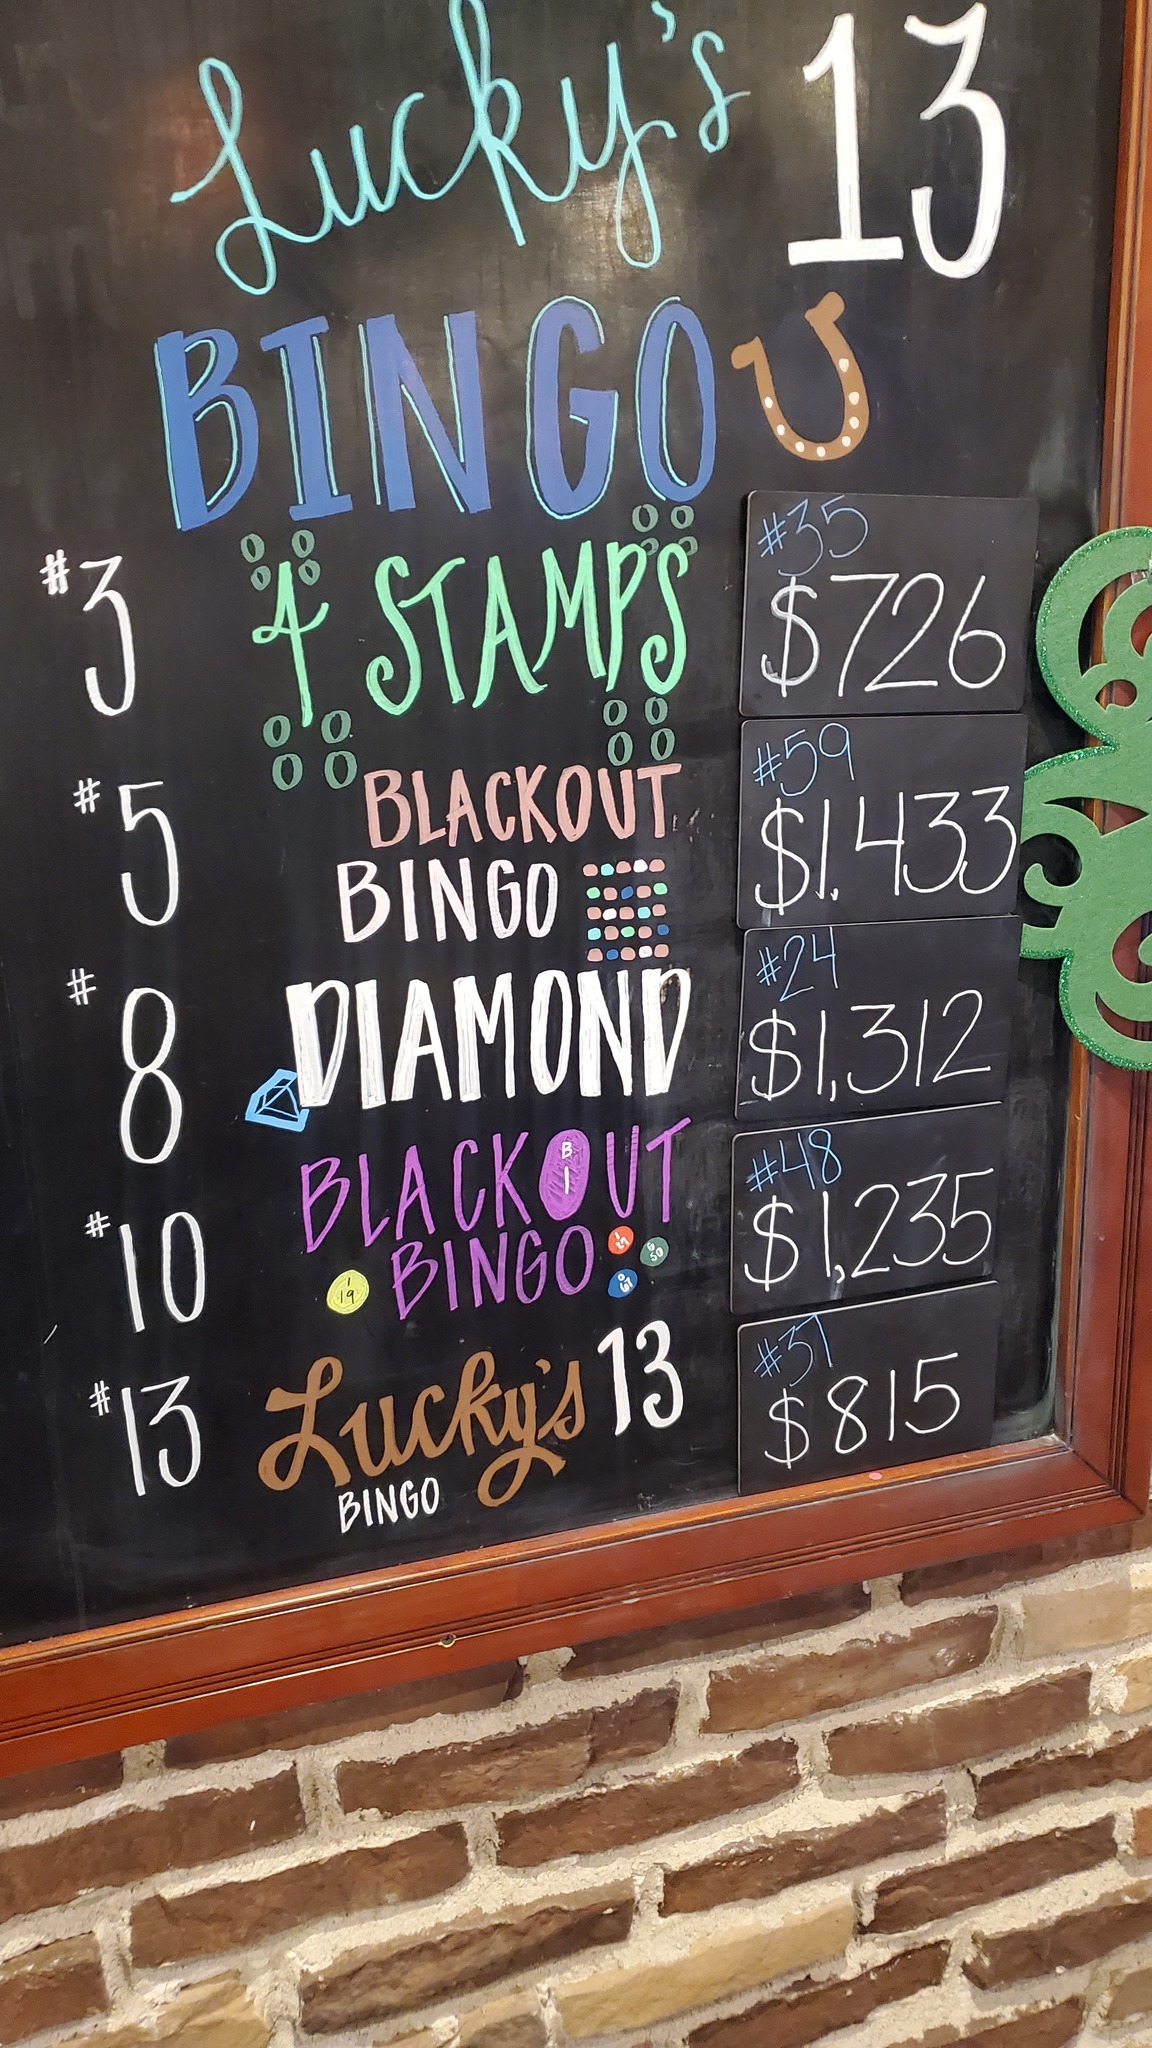 Lucky's 13
BINGO
#3 4 STAMPS #35 $726
#5 BLACKOUT BINGO #59 $1.433
#8 DIAMOND #24 $1,312
#10 BLACKOUT BINGO #48 $1,235
B 1
I 19
I 27
G 50
O 61
#13 Lucky's 13 BINGO #37 $815